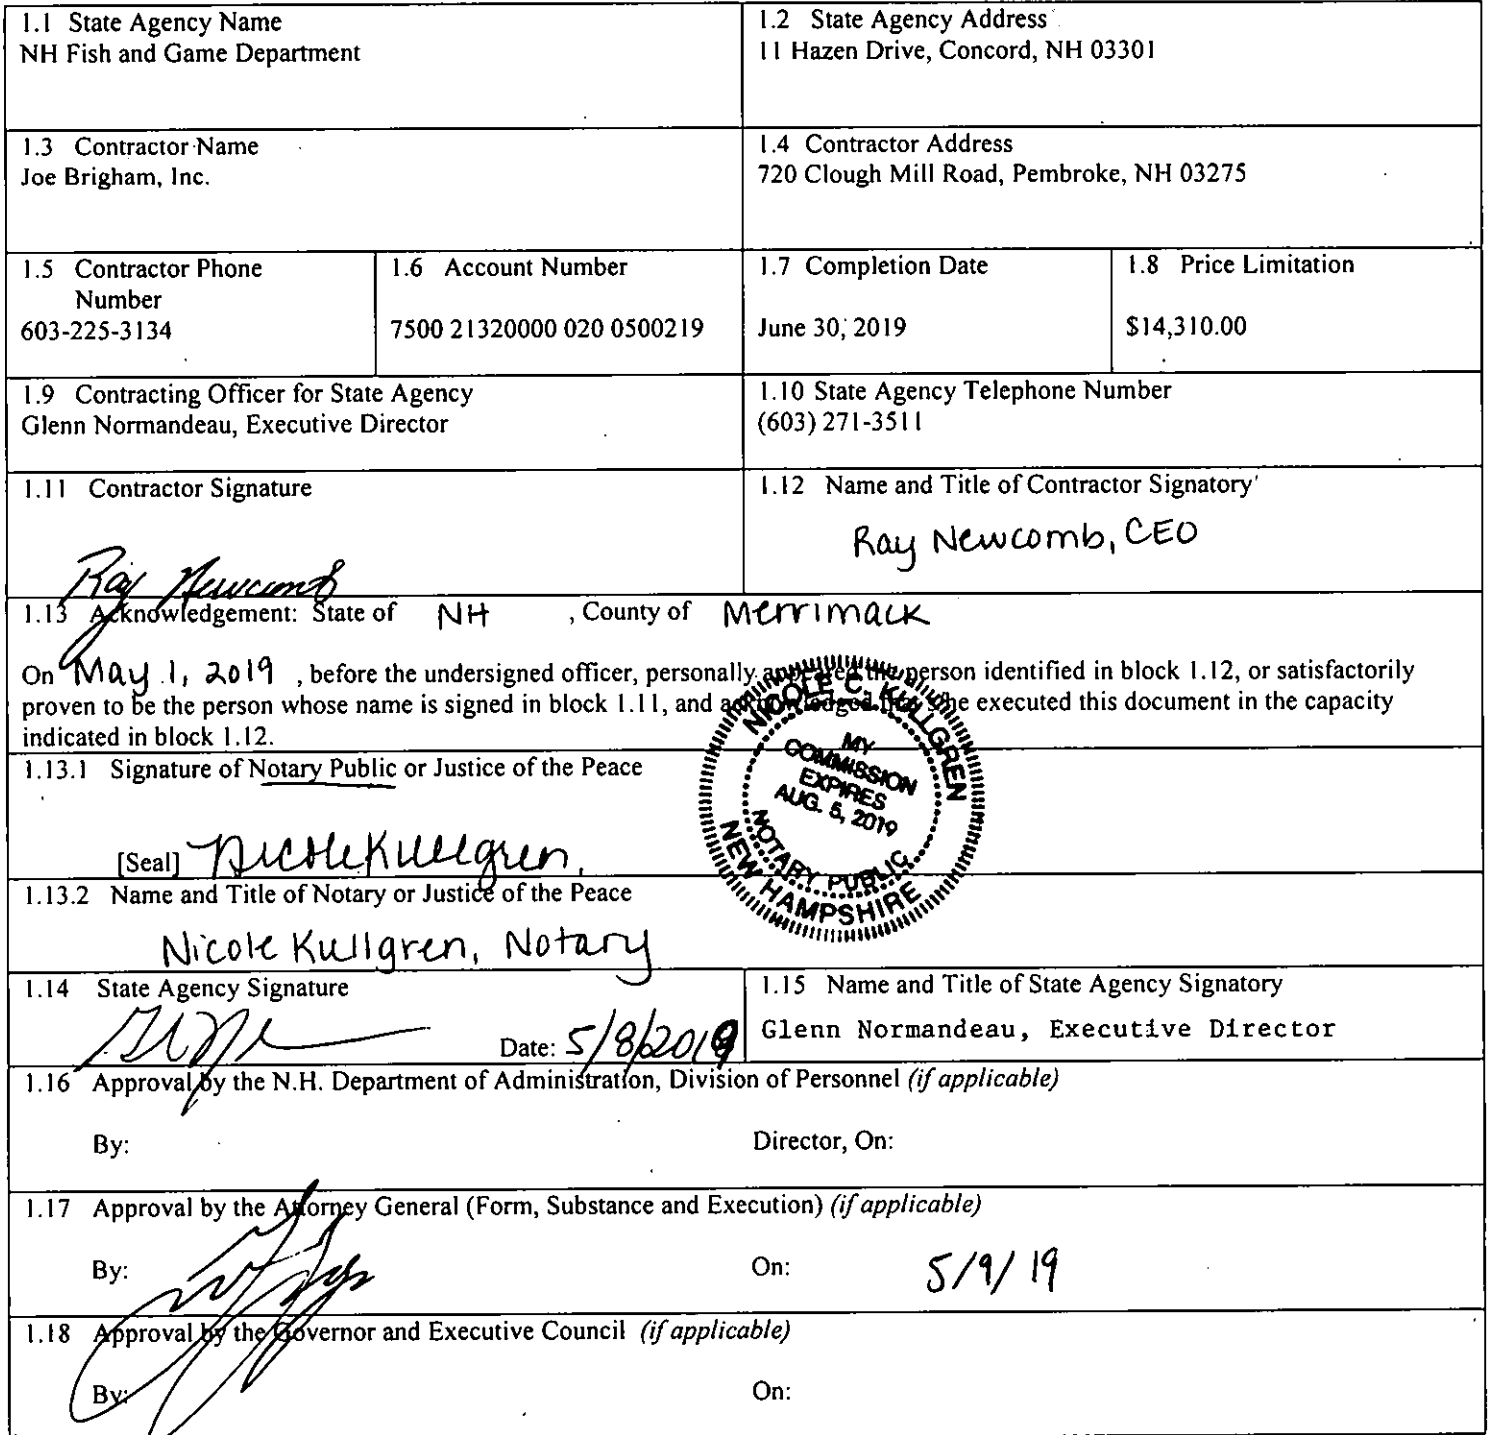 1.1 State Agency Name
NH Fish and Game Department
1.2 State Agency Address
11 Hazen Drive, Concord, NH 03301
1.3 Contractor Name
Joe Brigham, Inc.
1.4 Contractor Address
720 Clough Mill Road, Pembroke, NH 03275
1.5 Contractor Phone
Number
603-225-3134
1.6 Account Number
7500 21320000 020 0500219
1.7 Completion Date
June 30, 2019
1.8 Price Limitation
$14,310.00
1.9 Contracting Officer for State Agency
Glenn Normandeau, Executive Director
1.10 State Agency Telephone Number
(603) 271-3511
1.11 Contractor Signature
Ray Newcomb
1.12 Name and Title of Contractor Signatory
Ray Newcomb, CEO
1.13 Acknowledgement: State of NH , County of Merrimack
On May 1, 2019 , before the undersigned officer, personally appeared the person identified in block 1.12, or satisfactorily
proven to be the person whose name is signed in block 1.11, and acknowledged that s/he executed this document in the capacity
indicated in block 1.12.
1.13.1 Signature of Notary Public or Justice of the Peace
[Seal] Nicole Kullgren
NICOLE C. KULLGREN
MY
COMMISSION
EXPIRES
AUG. 5, 2019
NOTARY PUBLIC
NEW HAMPSHIRE
1.13.2 Name and Title of Notary or Justice of the Peace
Nicole Kullgren, Notary
1.14 State Agency Signature
Date: 5/8/2019
1.15 Name and Title of State Agency Signatory
Glenn Normandeau, Executive Director
1.16 Approval by the N.H. Department of Administration, Division of Personnel (if applicable)
By: Director, On:
1.17 Approval by the Attorney General (Form, Substance and Execution) (if applicable)
By: On: 5/9/19
1.18 Approval by the Governor and Executive Council (if applicable)
By: On: